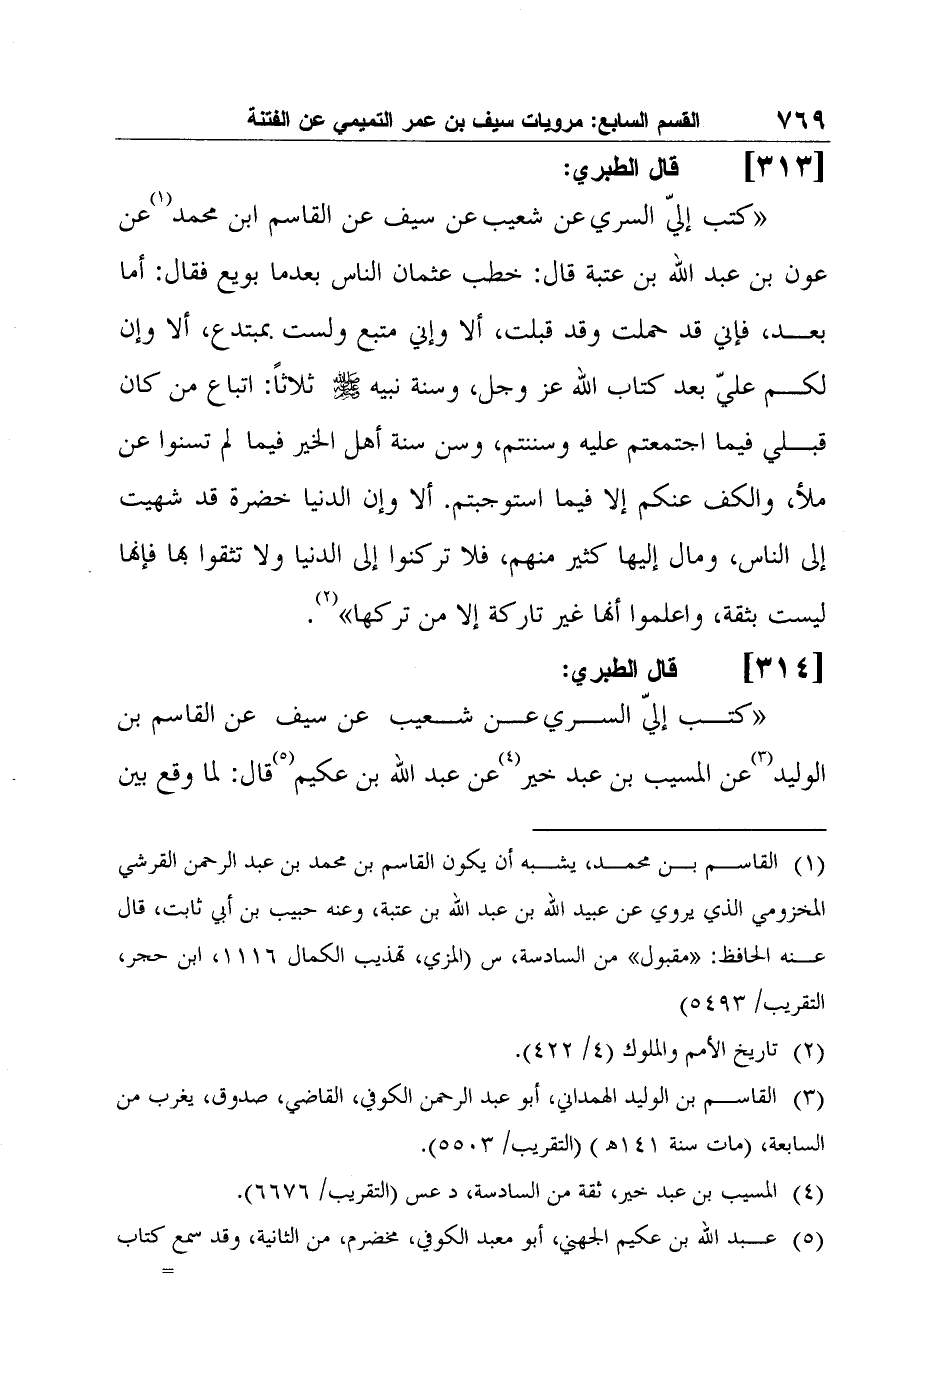 ٧٦٩ القسم السابع: مرويات سيف بن عمر التميمي عن الفتنة
[٣١٣] قال الطبري:
«كتب إليّ السري عن شعيب عن سيف عن القاسم ابن محمد(١) عن
عون بن عبد الله بن عتبة قال: خطب عثمان الناس بعدما بويع فقال: أما
بعــد، فإني قد حملت وقد قبلت، ألا وإني متبع ولست بمبتدع، ألا وإن
لكـــم عليّ بعد كتاب الله عز وجل، وسنة نبيه ﷺ ثلاثاً: اتباع من كان
قبــلي فيما اجتمعتم عليه وسننتم، وسن سنة أهل الخير فيما لم تسنوا عن
ملأ، والكف عنكم إلا فيما استوجبتم. ألا وإن الدنيا خضرة قد شهيت
إلى الناس، ومال إليها كثير منهم، فلا تركنوا إلى الدنيا ولا تثقوا بها فإنها
ليست بثقة، واعلموا أنها غير تاركة إلا من تركها»(٢).
[٣١٤] قال الطبري:
«كتـــب إليّ الســـري عـــن شـــعيب عن سيف عن القاسم بن
الوليد(٣) عن المسيب بن عبد خير(٤) عن عبد الله بن عكيم(٥) قال: لما وقع بين
(١) القاســـم بـــن محمـــد، يشـــبه أن يكون القاسم بن محمد بن عبد الرحمن القرشي
المخزومي الذي يروي عن عبيد الله بن عبد الله بن عتبة، وعنه حبيب بن أبي ثابت، قال
عـــنه الحافظ: «مقبول» من السادسة، س (المزي، تهذيب الكمال ١١١٦، ابن حجر،
التقريب/ ٥٤٩٣)
(٢) تاريخ الأمم والملوك (٤/ ٤٢٢).
(٣) القاســـم بن الوليد الهمداني، أبو عبد الرحمن الكوفي، القاضي، صدوق، يغرب من
السابعة، (مات سنة ١٤١ه) (التقريب/ ٥٥٠٣).
(٤) المسيب بن عبد خير، ثقة من السادسة، د عس (التقريب/ ٦٦٧٦).
(٥) عـــبد الله بن عكيم الجهني، أبو معبد الكوفي، مخضرم، من الثانية، وقد سمع كتاب
=